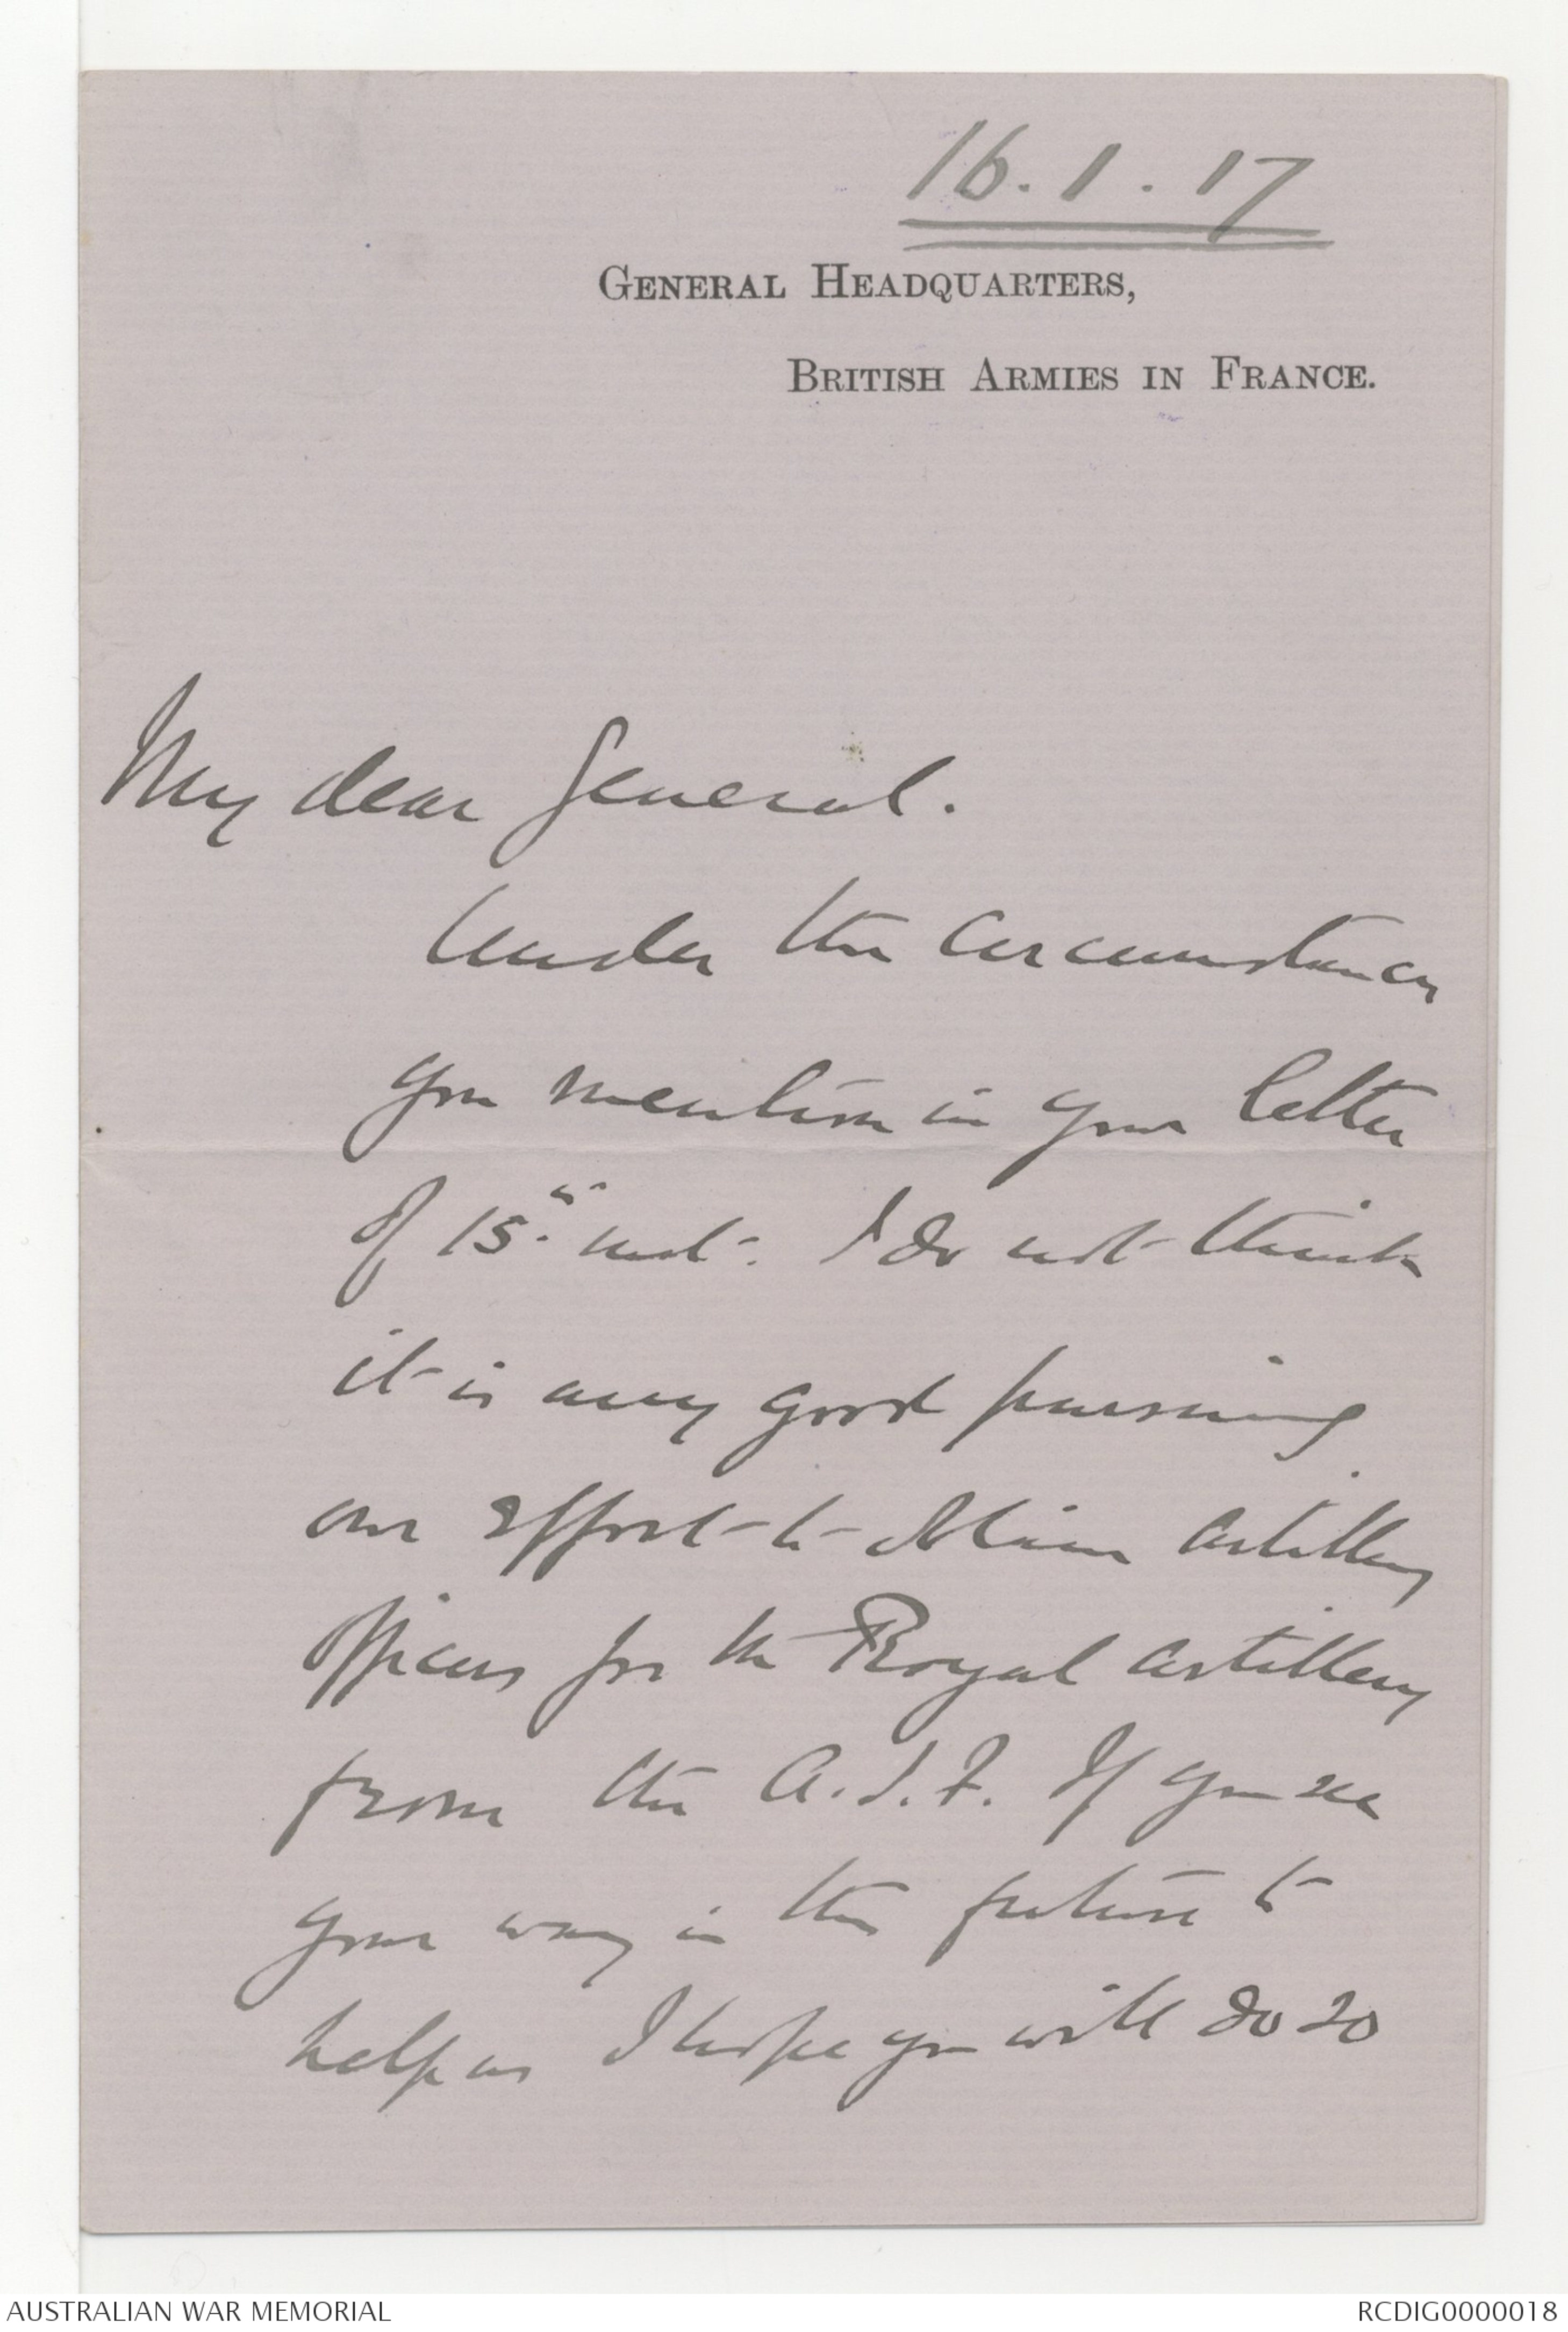 16.1.17
GENERAL HEADQUARTERS,
BRITISH ARMIES IN FRANCE.
My dear General.
Under the circumstances
you mention in your letter
of 15th inst. I do not think
it is any good pursuing
our effort to obtain artillery
officers for the Royal Artillery
from the A.I.F. If you see
your way in the future to
help us I hope you will do so
AUSTRALIAN WAR MEMORIAL
RCDIG0000018